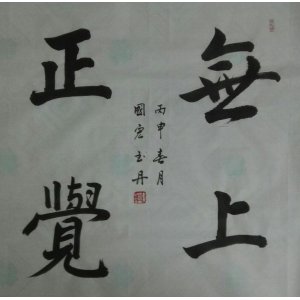 無上
正覺
丙申春月
國唐玉丹